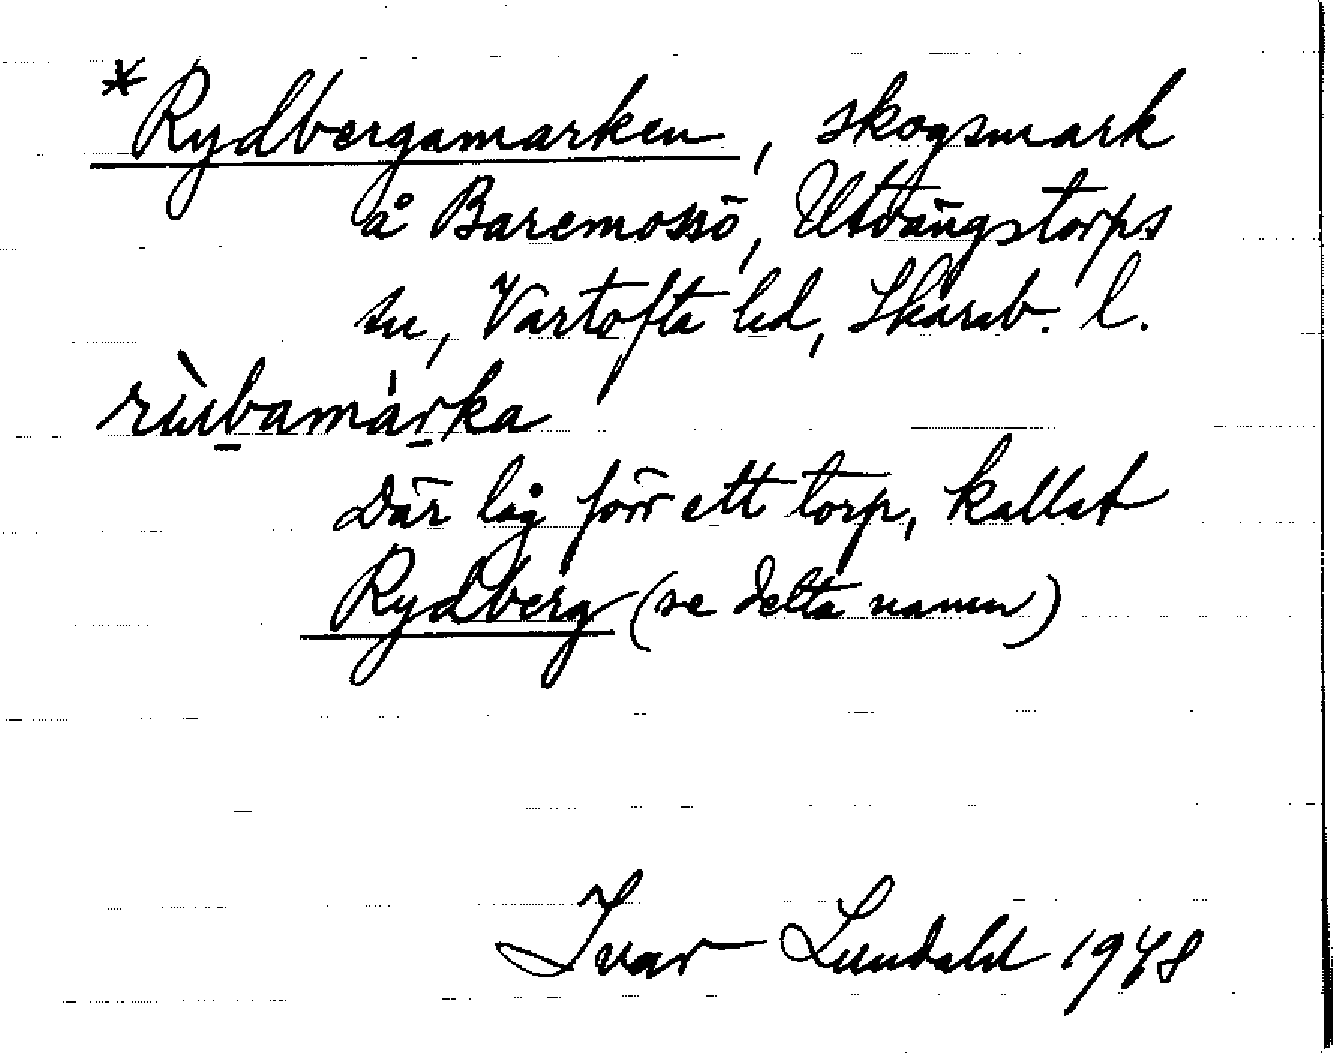 *Rydbergamarken, skogsmark
å Baremossö, Utvängstorps
sn, Vartofta hd, Skarab. l.
Där låg förr ett torp, kallat
Rydberg (se detta namn)
Ivar Lundahl 1948